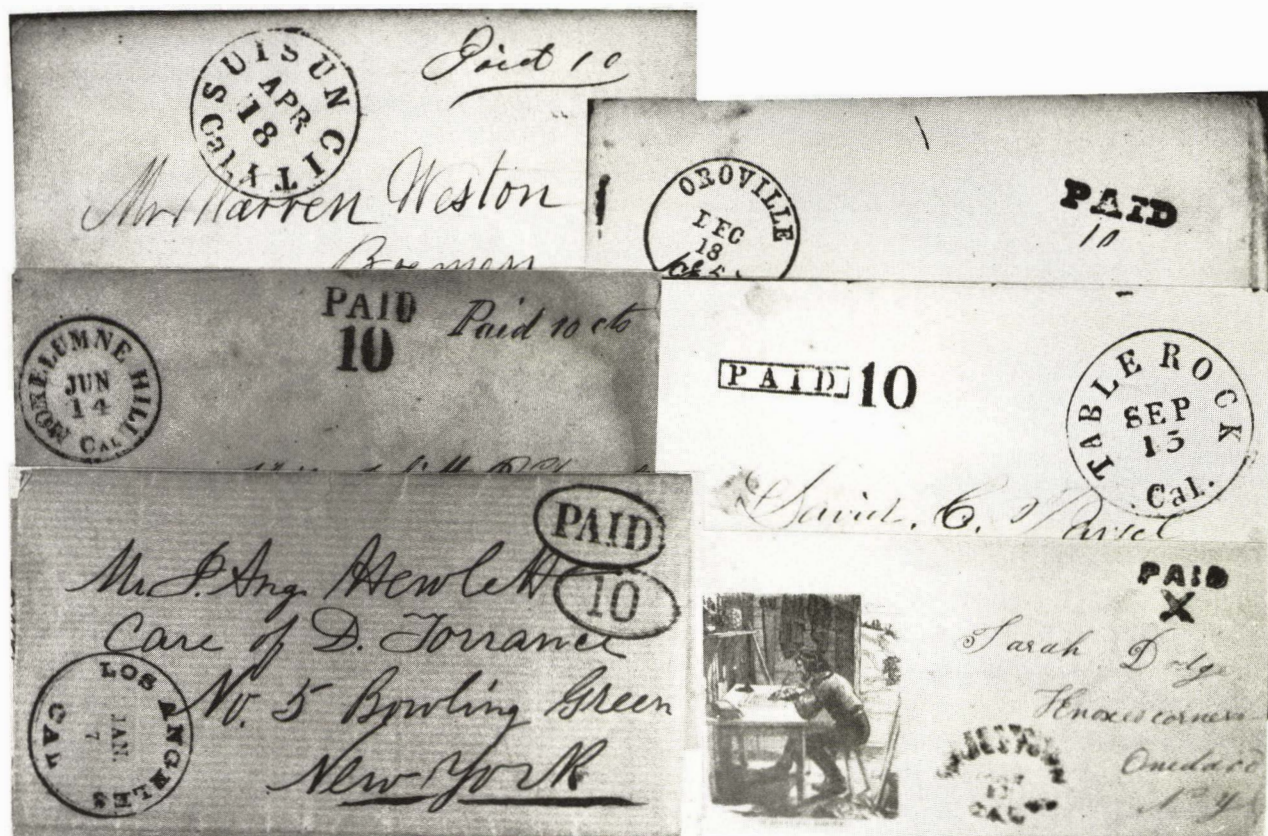 SUISUN CITY Cal.
APR
18
Paid 10
Mr Warren Weston
OROVILLE
DEC
18
PAID
10
MOKELUMNE HILL CAL
JUN
14
PAID
10
Paid 10 cts
PAID 10
TABLE ROCK
SEP
15
Cal.
David. C.
PAID
10
Mr J. Aug. Hewlett
Care of D. Torrance
No. 5 Bowling Green
New York
LOS ANGELES CAL
JAN
7
PAID
X
Sarah Dodge
Knoxes corners
N. Y.
CAL